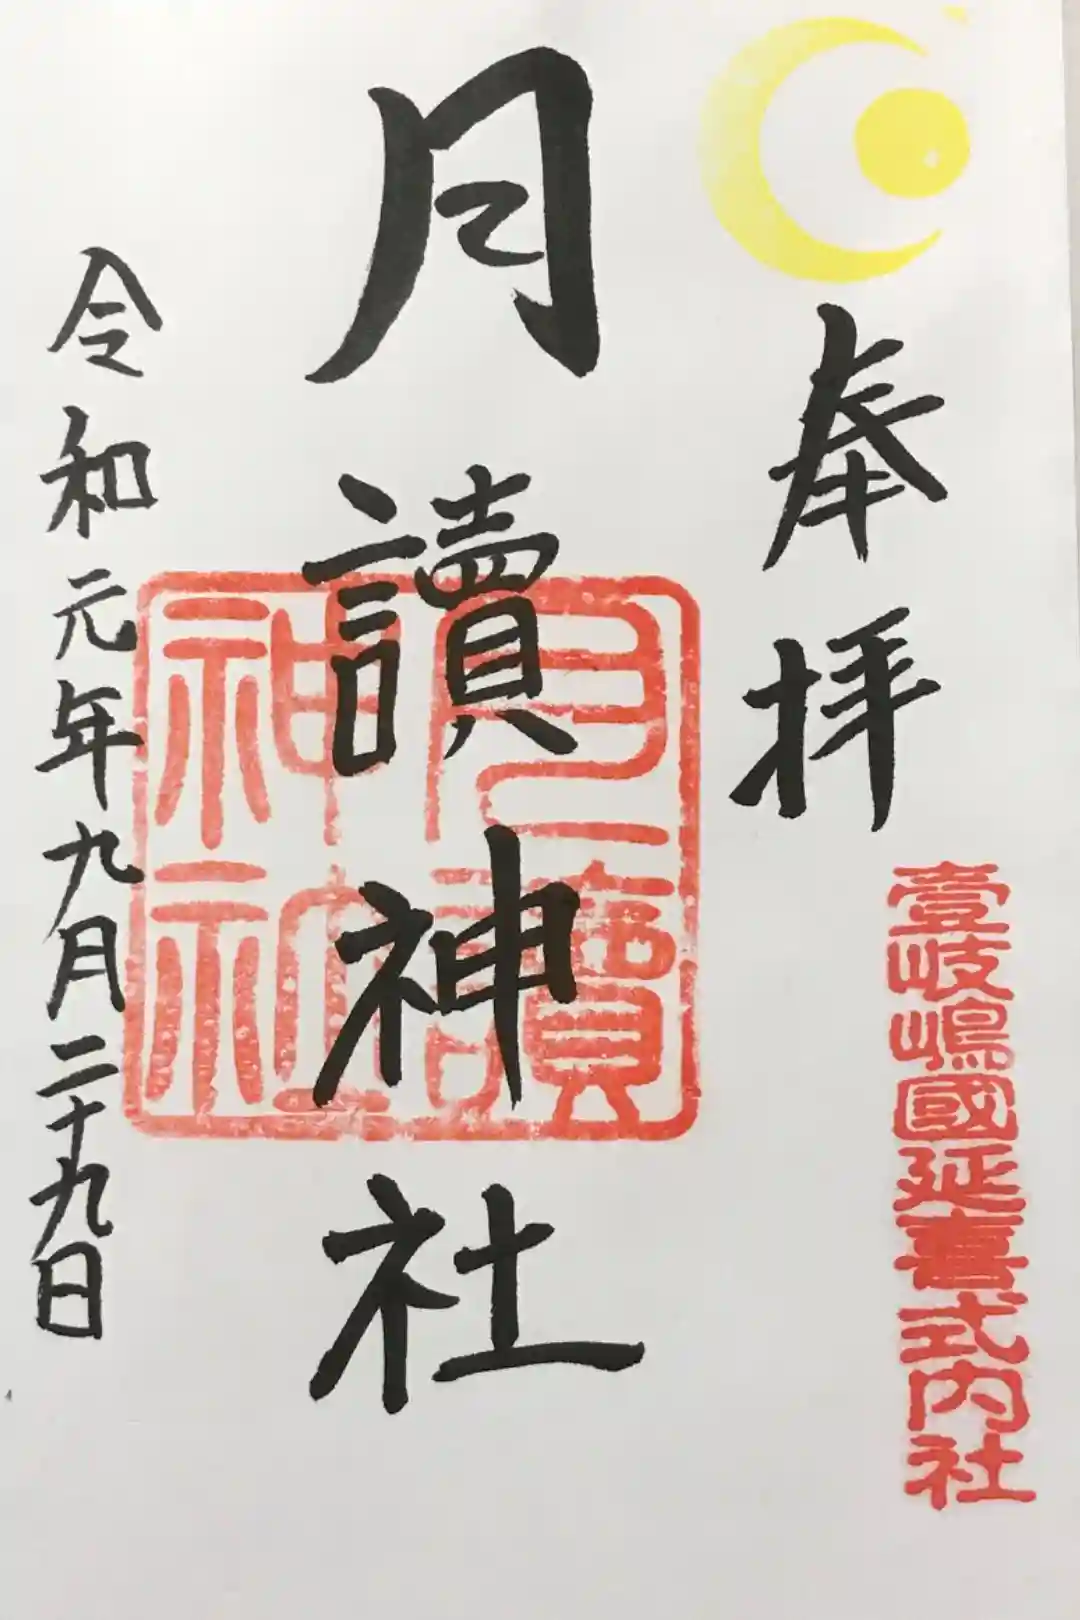 奉拝
壹岐嶋國延喜式内社
月讀神社
月讀
神社
令和元年九月二十九日